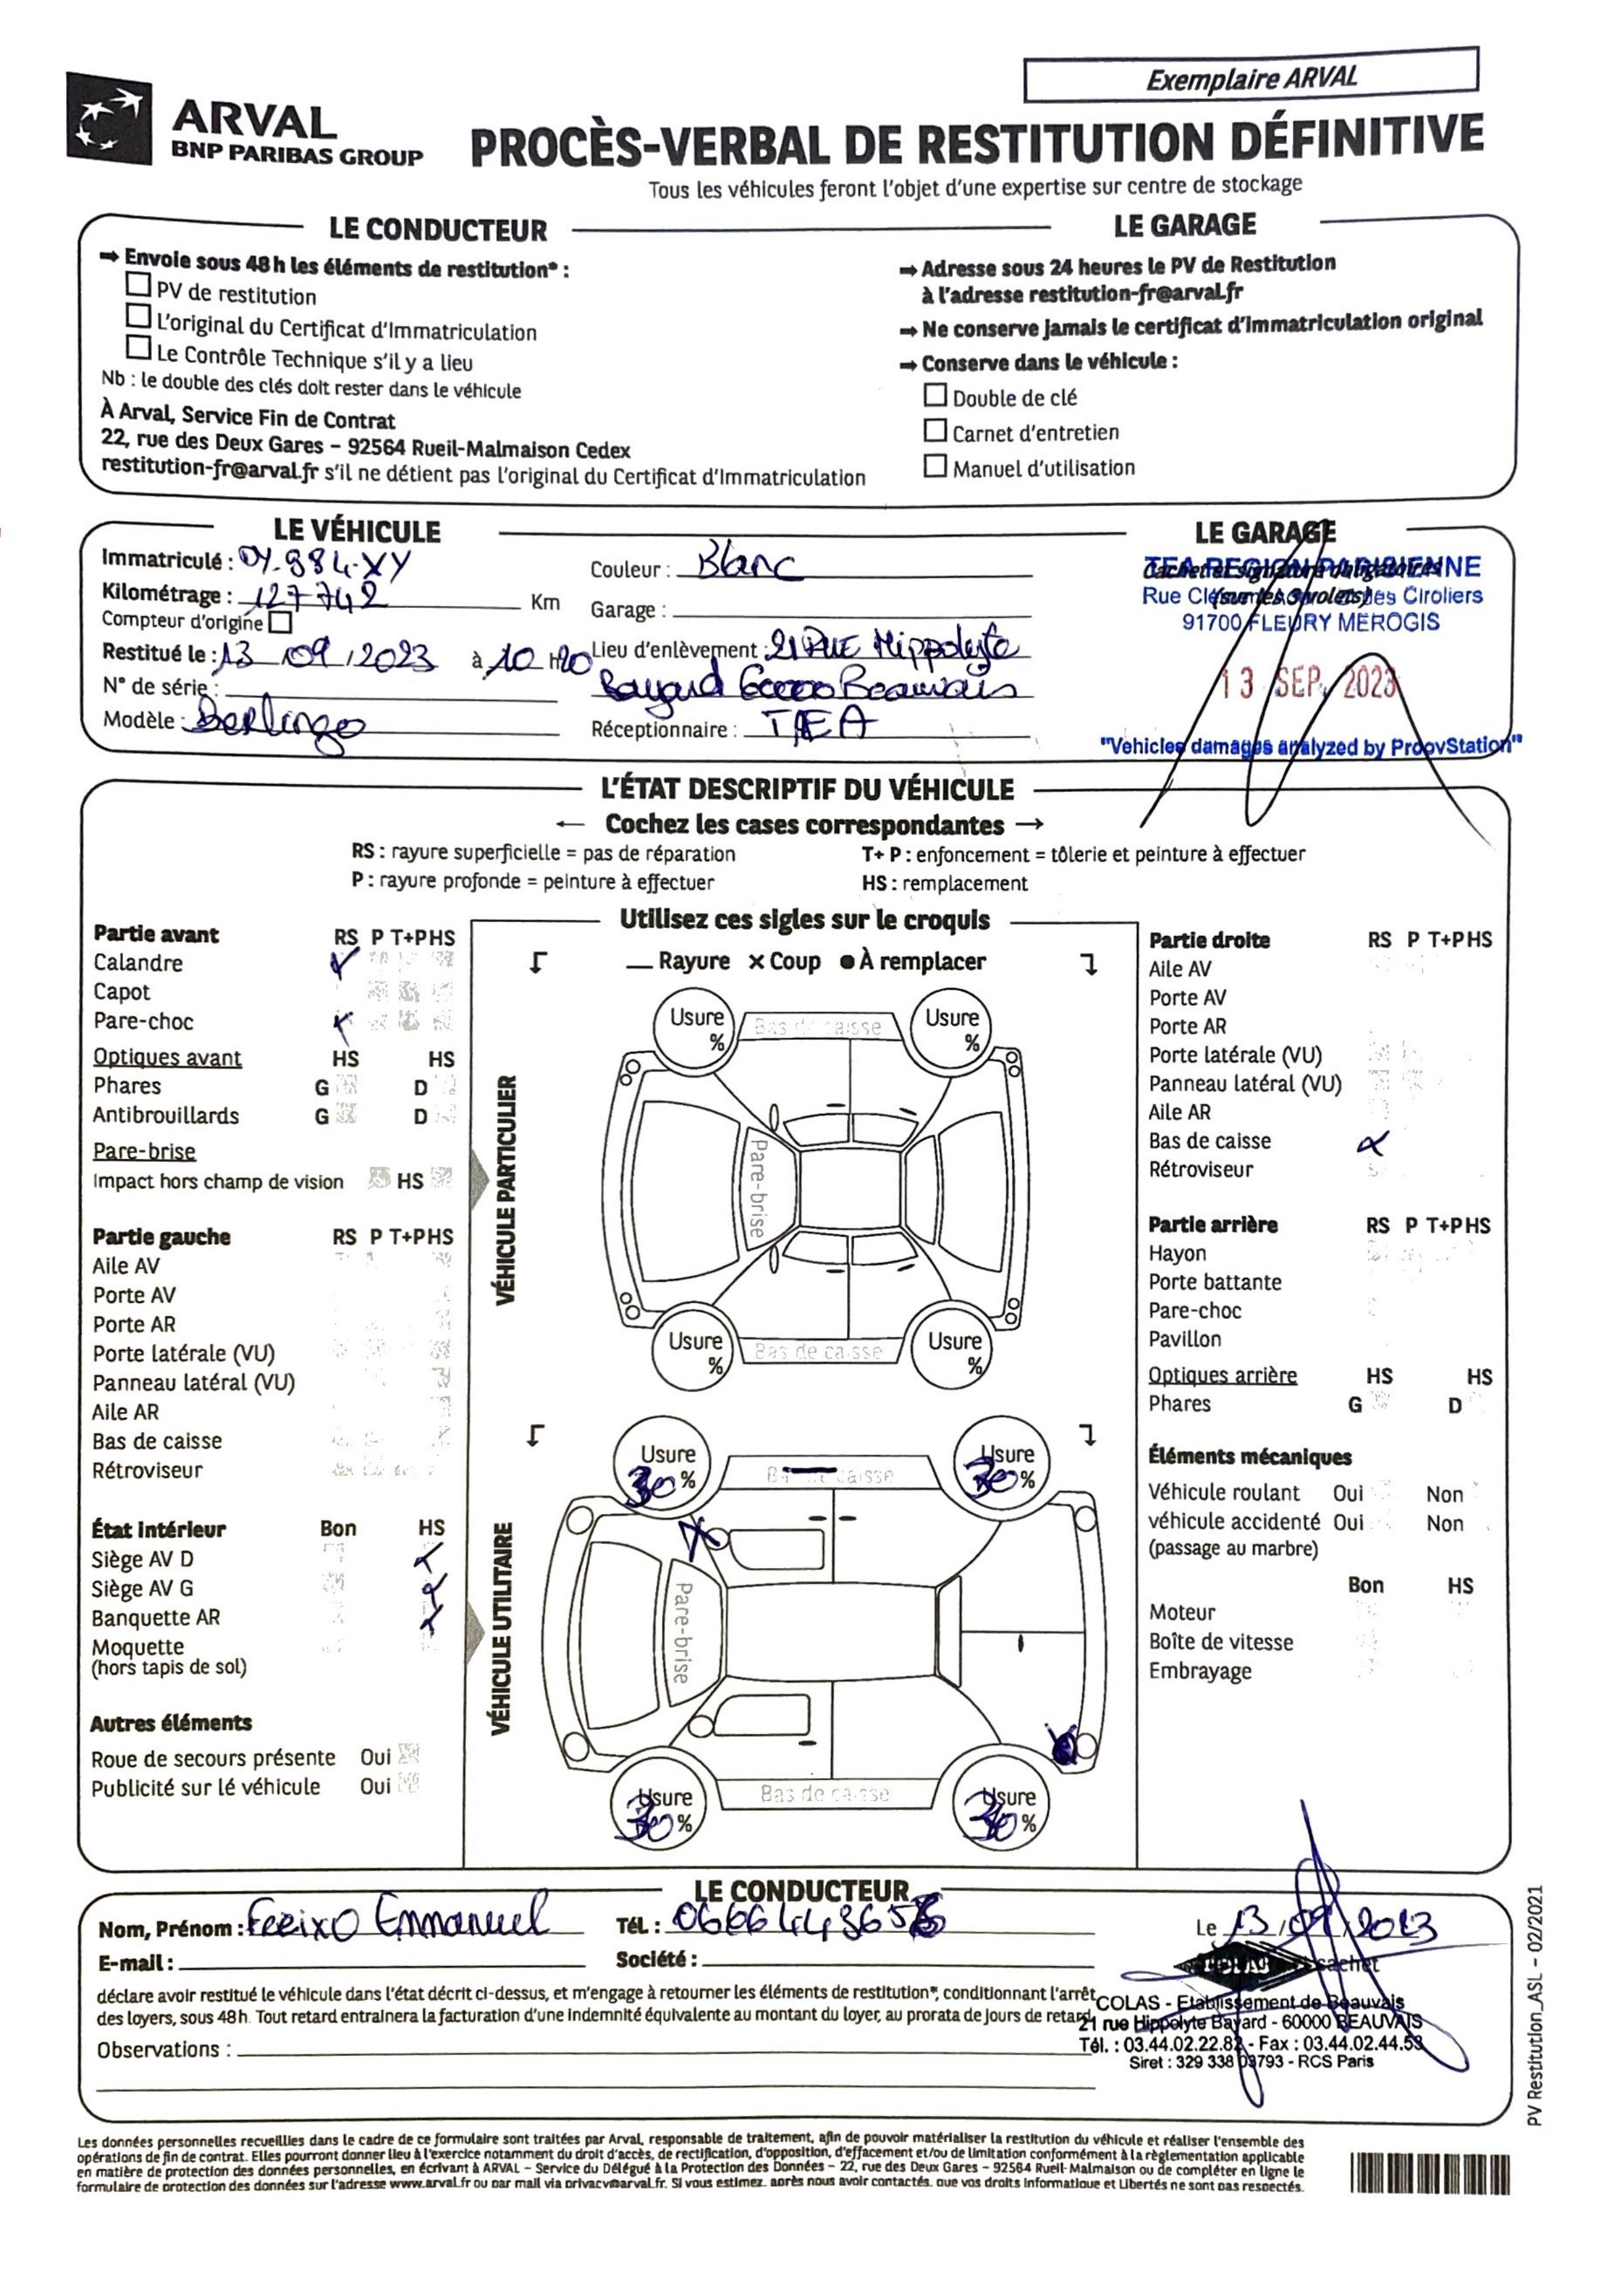 Exemplaire ARVAL
ARVAL
BNP PARIBAS GROUP
PROCÈS-VERBAL DE RESTITUTION DÉFINITIVE
Tous les véhicules feront l'objet d'une expertise sur centre de stockage
LE CONDUCTEUR
➞ Envoie sous 48 h les éléments de restitution* :
PV de restitution
L'original du Certificat d'Immatriculation
Le Contrôle Technique s'il y a lieu
Nb : le double des clés doit rester dans le véhicule
À Arval, Service Fin de Contrat
22, rue des Deux Gares – 92564 Rueil-Malmaison Cedex
restitution-fr@arval.fr s'il ne détient pas l'original du Certificat d'Immatriculation
LE GARAGE
➞ Adresse sous 24 heures le PV de Restitution
à l'adresse restitution-fr@arval.fr
➞ Ne conserve jamais le certificat d'immatriculation original
➞ Conserve dans le véhicule :
Double de clé
Carnet d'entretien
Manuel d'utilisation
LE VÉHICULE
Immatriculé : DY-984-XY
Kilométrage : 127742 Km
Compteur d'origine
Restitué le : 13/09/2023 à 10 H20
N° de série :
Modèle : Berlingo
Couleur : Blanc
Garage :
Lieu d'enlèvement : 21 RUE Hippolyte
Bayard 60000 Beauvais
Réceptionnaire : TEA
LE GARAGE
TEA REGION PARISIENNE
Cachet et signature obligatoires
(sur les 3 volets)
Rue Clément Ader des Ciroliers
91700 FLEURY MEROGIS
13 SEP. 2023
"Vehicles damages analyzed by ProovStation"
L'ÉTAT DESCRIPTIF DU VÉHICULE
← Cochez les cases correspondantes →
RS : rayure superficielle = pas de réparation
T+ P : enfoncement = tôlerie et peinture à effectuer
P : rayure profonde = peinture à effectuer
HS : remplacement
Utilisez ces sigles sur le croquis
— Rayure × Coup ● À remplacer
Partie avant RS P T+P HS
Calandre
Capot
Pare-choc
Optiques avant HS HS
Phares G D
Antibrouillards G D
Pare-brise
Impact hors champ de vision HS
Partie gauche RS P T+P HS
Aile AV
Porte AV
Porte AR
Porte latérale (VU)
Panneau latéral (VU)
Aile AR
Bas de caisse
Rétroviseur
État intérieur Bon HS
Siège AV D
Siège AV G
Banquette AR
Moquette
(hors tapis de sol)
Autres éléments
Roue de secours présente Oui
Publicité sur lé véhicule Oui
VÉHICULE PARTICULIER
Usure % Bas de caisse Usure %
Pare-brise
Usure % Bas de caisse Usure %
VÉHICULE UTILITAIRE
Usure 30 % Bas de caisse Usure 30 %
Pare-brise
Usure 30 % Bas de caisse Usure 30 %
Partie droite RS P T+P HS
Aile AV
Porte AV
Porte AR
Porte latérale (VU)
Panneau latéral (VU)
Aile AR
Bas de caisse
Rétroviseur
Partie arrière RS P T+P HS
Hayon
Porte battante
Pare-choc
Pavillon
Optiques arrière HS HS
Phares G D
Éléments mécaniques
Véhicule roulant Oui Non
véhicule accidenté Oui Non
(passage au marbre)
Bon HS
Moteur
Boîte de vitesse
Embrayage
LE CONDUCTEUR
Nom, Prénom : Emmanuel
Tél. :
Le 13/09/2023
E-mail :
Société :
cachet
déclare avoir restitué le véhicule dans l'état décrit ci-dessus, et m'engage à retourner les éléments de restitution*, conditionnant l'arrêt
des loyers, sous 48h. Tout retard entraînera la facturation d'une indemnité équivalente au montant du loyer, au prorata de jours de retard
Observations :
COLAS - Etablissement de Beauvais
21 rue Hippolyte Bayard - 60000 BEAUVAIS
Tél. : 03.44.02.22.82 - Fax : 03.44.02.44.53
Siret : 329 338 03793 - RCS Paris
PV Restitution_ASL – 02/2021
Les données personnelles recueillies dans le cadre de ce formulaire sont traitées par Arval, responsable de traitement, afin de pouvoir matérialiser la restitution du véhicule et réaliser l'ensemble des
opérations de fin de contrat. Elles pourront donner lieu à l'exercice notamment du droit d'accès, de rectification, d'opposition, d'effacement et/ou de limitation conformément à la règlementation applicable
en matière de protection des données personnelles, en écrivant à ARVAL – Service du Délégué à la Protection des Données – 22, rue des Deux Gares – 92564 Rueil-Malmaison ou de compléter en ligne le
formulaire de protection des données sur l'adresse www.arval.fr ou par mail via privacy@arval.fr. Si vous estimez, après nous avoir contactés, que vos droits Informatique et Libertés ne sont pas respectés.